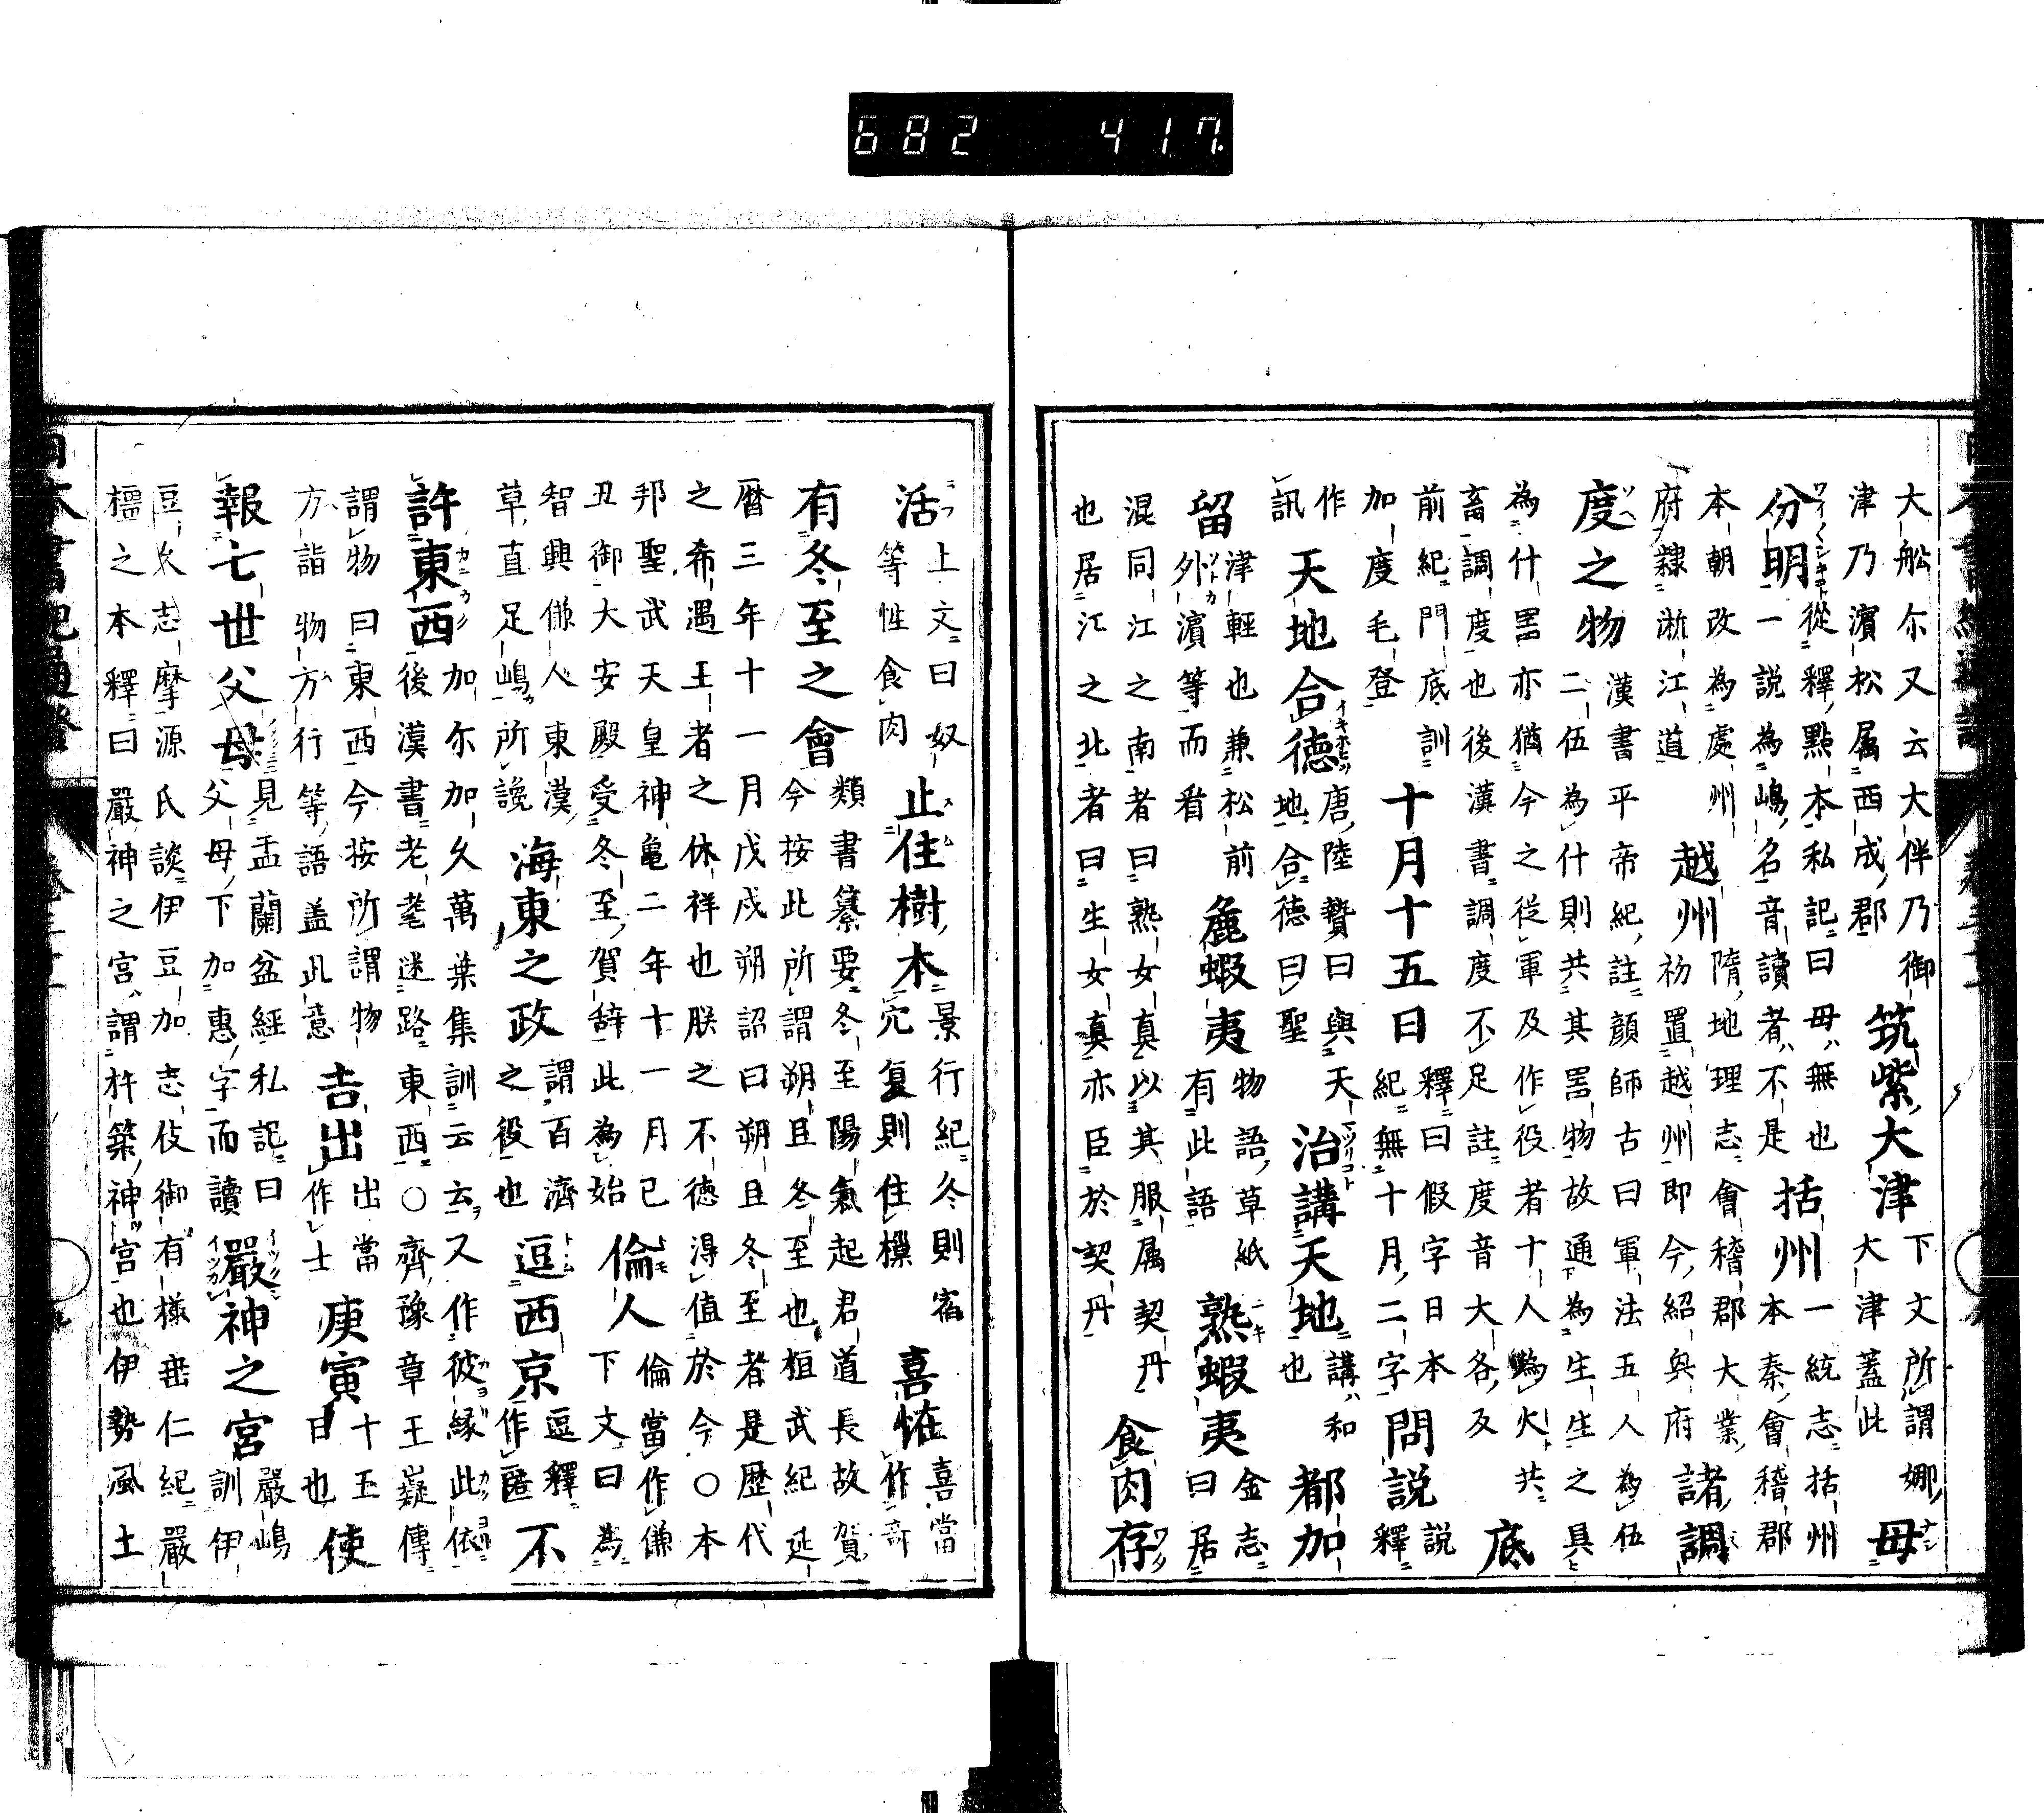 大舩尓又云大伴乃御
津乃濱松属西成郡
筑紫大津
下文所謂娜
大津蓋此
毋
分明
從釋點本私記曰毋無也
一説為嶋名音讀者不是
括州
一統志括州
本秦會稽郡
本朝改為處州
府隷浙江道
越州
隋地理志會稽郡大業
初置越州即今紹興府
諸調
度之物
漢書平帝紀註顔師古曰軍法五人為伍
二伍為什則共其噐物故通為生生之具
為什噐亦猶今之從軍及作役者十人為火共
畜調度也後漢書調度不足註度音大各反
底
前紀門底訓
加度毛登
十月十五日
釋曰假字日本
紀無十月二字
問説
説
釋
作
訊
天地合徳
唐陸贄曰與天
地合德曰聖
治講天地
講和
也
都加
留
津輕也兼松前
外濱等而看
麁蝦夷
物語草紙
有此語
熟蝦夷
金志
曰居
混同江之南者曰熟女真以其服属契丹
也居江之北者曰生女真亦臣於契丹
食肉存
活
上文曰奴
等性食肉
止住樹木
景行紀冬則宿
穴复則住樔
喜恠
喜當
作奇
有冬至之會
類書纂要冬至陽氣起君道長故賀
今按此所謂朔旦冬至也桓武紀延
暦三年十一月戊戌朔詔曰朔旦冬至者是歴代
之希遇王者之休祥也朕之不徳得値於今○本
邦聖武天皇神亀二年十一月己
丑御大安殿受冬至賀辞此為始
倫人
倫當作傔
下文曰為
智興傔人東漢
草直足嶋所讒
海東之政
謂百濟
之役也
逗西京
逗釋
作匿
不
許東西
加尓加久萬葉集訓云云又作彼縁此依
後漢書老耄迷路東西○齊豫章王嶷傳
謂物曰東西今按所謂物
方詣物方行等語盖此意
吉出
出當
作士
庚寅
十五
日也
使
報七世父母
見盂蘭盆經私記曰
父母下加惠字而讀
嚴神之宮
嚴嶋
訓伊
豆氷志摩源氏談伊豆加志伎御有様垂仁紀嚴
橿之本釋曰嚴神之宮謂杵築神宮也伊勢風土